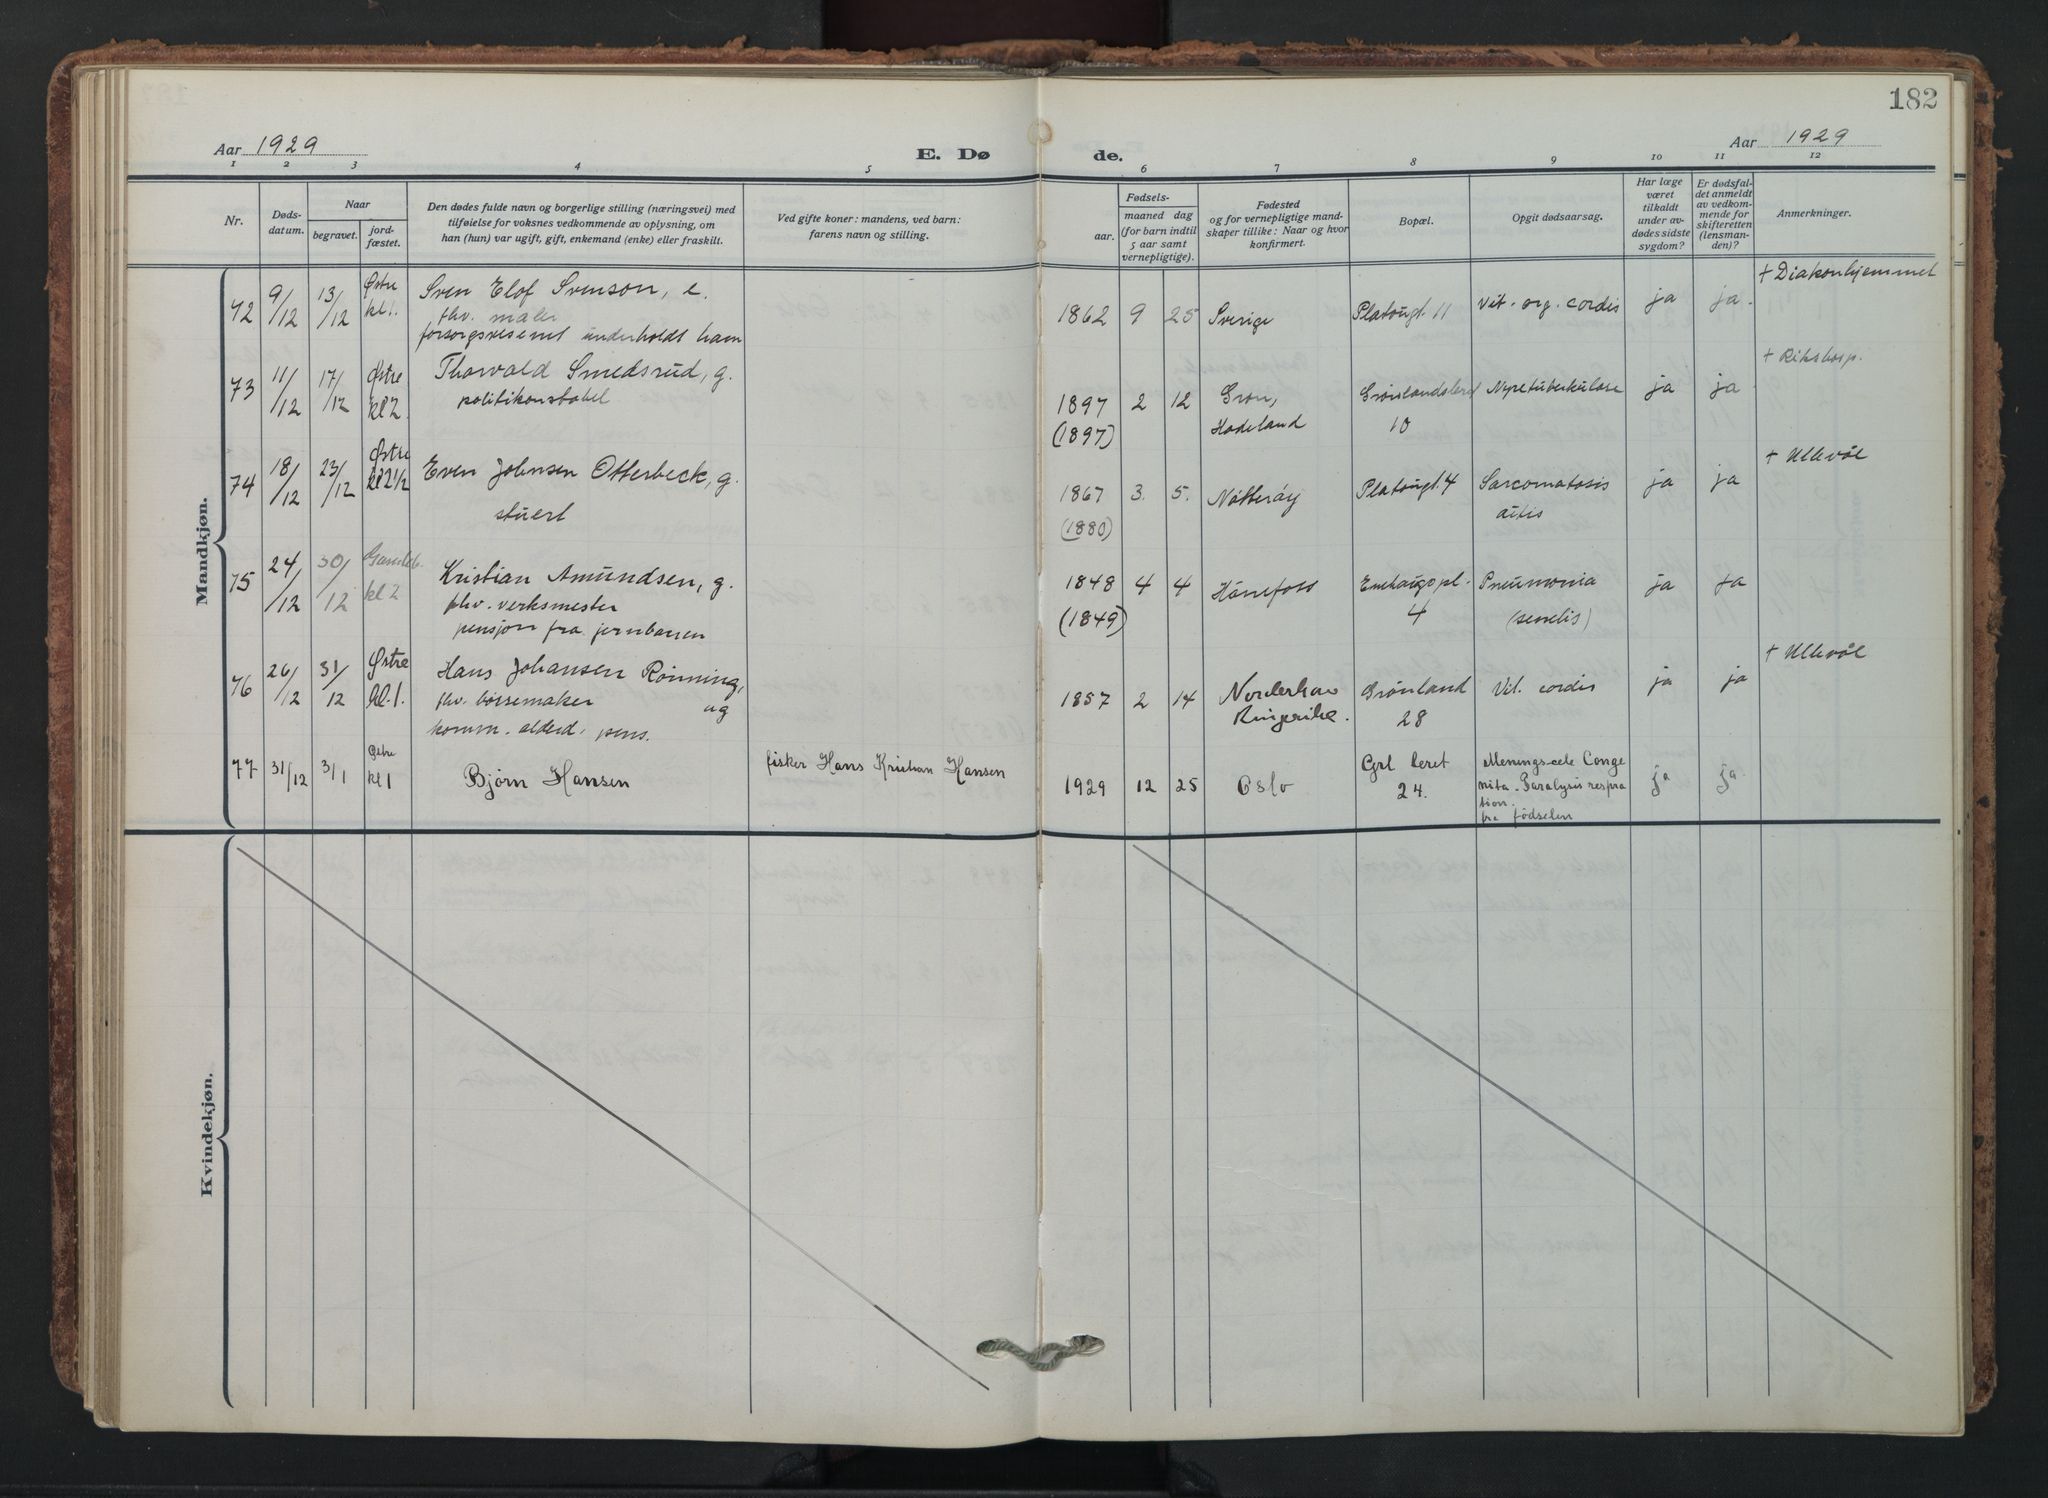 182
Aar 1929
E. Dø
de.
Aar 1929
1 2 3 4 5 6 7 8 9 10 11 12
Nr.
Døds-
datum.
Naar
begravet.
jord-
fæstet.
Den dødes fulde navn og borgerlige stilling (næringsvei) med
tilføielse for voksnes vedkommende av oplysning, om
han (hun) var ugift, gift, enkemand (enke) eller fraskilt.
Ved gifte koner: mandens, ved barn:
farens navn og stilling.
Fødsels-
aar.
maaned dag
(for barn indtil
5 aar samt
vernepligtige).
Fødested
og for vernepligtige mand-
skaper tillike: Naar og hvor
konfirmert.
Bopæl.
Opgit dødsaarsag.
Har læge
været
tilkaldt
under av-
dødes sidste
sygdom?
Er dødsfal-
det anmeldt
av vedkom-
mende for
skifteretten
(lensman-
den)?
Anmerkninger.
Mandkjøn.
72 9/12 13/12 Østre kl 1. Sven Elof Svenson, e. 1862 9 25 Sverige Platougt. 11 Vit. org. cordis ja ja. + Diakonhjemmet
fhv. maler
forsorgsvesenet underholdt ham
73 11/12 17/12 Østre kl 2 Thorvald Smedsrud, g. 1897 2 12 Gran, Grønlandsleret Nyretuberkulose ja ja + Rikshosp.
politikonstabel (1897) Hadeland 10
74 18/12 23/12 Østre kl 2 1/2 Even Johnsen Otterbeck, g. 1867 3. 5. Nøtterøy Platougt. 4 Sarcomatosis ja ja + Ullevål
stuert (1880)
75 24/12 30/12 Gamleb. kl 2 Kristian Amundsen, g. 1848 4 4 Hønefoss Enehaugspl. Pneumonia ja ja
fhv. verksmester (1849) 4 (senilis)
pensjon fra jernbanen
76 26/12 31/12 Østre kl. 1. Hans Johansen Rønning, 1857 2 14 Norderhov Grønland Vit. cordis ja ja + Ullevål
fhv. børsemaker ug Ringerike. 28
komm. alderd. pens.
77 31/12 3/1 Østre kl 1 Bjørn Hansen fisker Hans Kristian Hansen 1929 12 25 Oslo Grl leret Menings-cele Conge ja ja
24. nita - Paralysis respira
tion.
fra fødselen
Kvindekjøn.